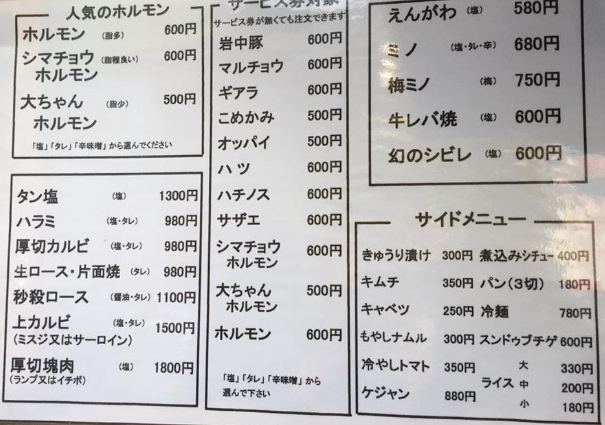 人気のホルモン
ホルモン (脂多) 600円
シマチョウ (脂程良い) 600円
ホルモン
大ちゃん (脂少) 500円
ホルモン
「塩」「タレ」「辛味噌」から選んでください
タン塩 (塩) 1300円
ハラミ (塩・タレ) 980円
厚切カルビ (塩・タレ) 980円
生ロース・片面焼 (タレ) 980円
秒殺ロース (醤油・タレ) 1100円
上カルビ (塩・タレ) 1500円
(ミスジ又はサーロイン)
厚切塊肉 (塩) 1800円
(ランプ又はイチボ)
サービス券対象
サービス券が無くても注文できます
岩中豚 600円
マルチョウ 600円
ギアラ 600円
こめかみ 500円
オッパイ 500円
ハツ 600円
ハチノス 600円
サザエ 600円
シマチョウ 600円
ホルモン
大ちゃん 500円
ホルモン
ホルモン 600円
「塩」「タレ」「辛味噌」から
選んで下さい
えんがわ (塩) 580円
ミノ (塩・タレ・辛) 680円
梅ミノ (梅) 750円
牛レバ焼 (塩) 600円
幻のシビレ (塩) 600円
サイドメニュー
きゅうり漬け 300円
キムチ 350円
キャベツ 250円
もやしナムル 300円
冷やしトマト 350円
ケジャン 880円
煮込みシチュー 400円
パン(3切) 180円
冷麺 780円
スンドゥブチゲ 600円
ライス 大 330円
中 200円
小 180円